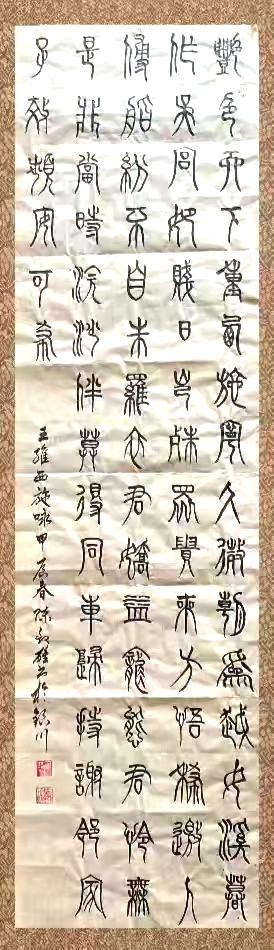 豔色天下重西施寧久微朝為越女溪暮
作吳宮妃賤日豈殊眾貴來方悟稀邀人
傅脂粉不自羅衣君嬌益寵態君憐無
是非當時浣沙伴莫得同車歸持謝鄰家
子效顰安可希
王維西施咏甲辰春陈於銀川